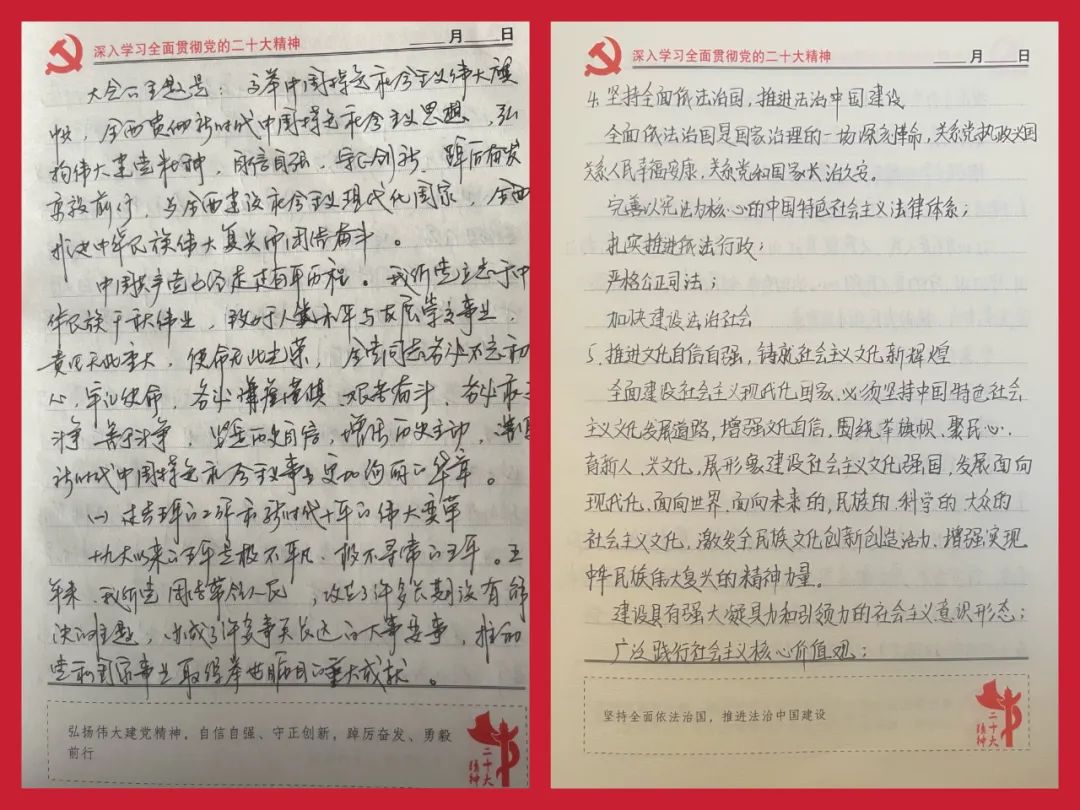 深入学习全面贯彻党的二十大精神
月 日
大会的主题是：高举中国特色社会主义伟大旗
帜，全面贯彻新时代中国特色社会主义思想，弘
扬伟大建党精神，自信自强、守正创新、踔厉奋发
勇毅前行，为全面建设社会主义现代化国家，全面
推进中华民族伟大复兴而团结奋斗。
中国共产党已经走过百年历程。我们党立志于中
华民族千秋伟业，致力于人类和平与发展崇高事业，
责任无比重大，使命无比光荣，全党同志务必不忘初
心，牢记使命，务必谦虚谨慎、艰苦奋斗，务必敢于
斗争，善于斗争，坚定历史自信，增强历史主动，谱写
新时代中国特色社会主义事业更加绚丽的华章。
(一)过去五年的工作和新时代十年的伟大变革
十九大以来的五年是极不平凡、极不寻常的五年。五
年来，我们党团结带领人民，攻克了许多长期没有解
决的难题，办成了许多事关长远的大事要事，推动
党和国家事业取得举世瞩目的重大成就。
弘扬伟大建党精神，自信自强、守正创新，踔厉奋发、勇毅
前行
二十大
精神
深入学习全面贯彻党的二十大精神
月 日
4. 坚持全面依法治国，推进法治中国建设
全面依法治国是国家治理的一场深刻革命，关系党执政兴国
关系人民幸福安康，关系党和国家长治久安。
完善以宪法为核心的中国特色社会主义法律体系；
扎实推进依法行政；
严格公正司法；
加快建设法治社会
5. 推进文化自信自强，铸就社会主义文化新辉煌
全面建设社会主义现代化国家，必须坚持中国特色社会
主义文化发展道路，增强文化自信，围绕举旗帜、聚民心、
育新人、兴文化、展形象建设社会主义文化强国，发展面向
现代化、面向世界、面向未来的，民族的 科学的 大众的
社会主义文化，激发全民族文化创新创造活力，增强实现
中华民族伟大复兴的精神力量。
建设具有强大凝聚力和引领力的社会主义意识形态；
广泛践行社会主义核心价值观；
坚持全面依法治国，推进法治中国建设
二十大
精神